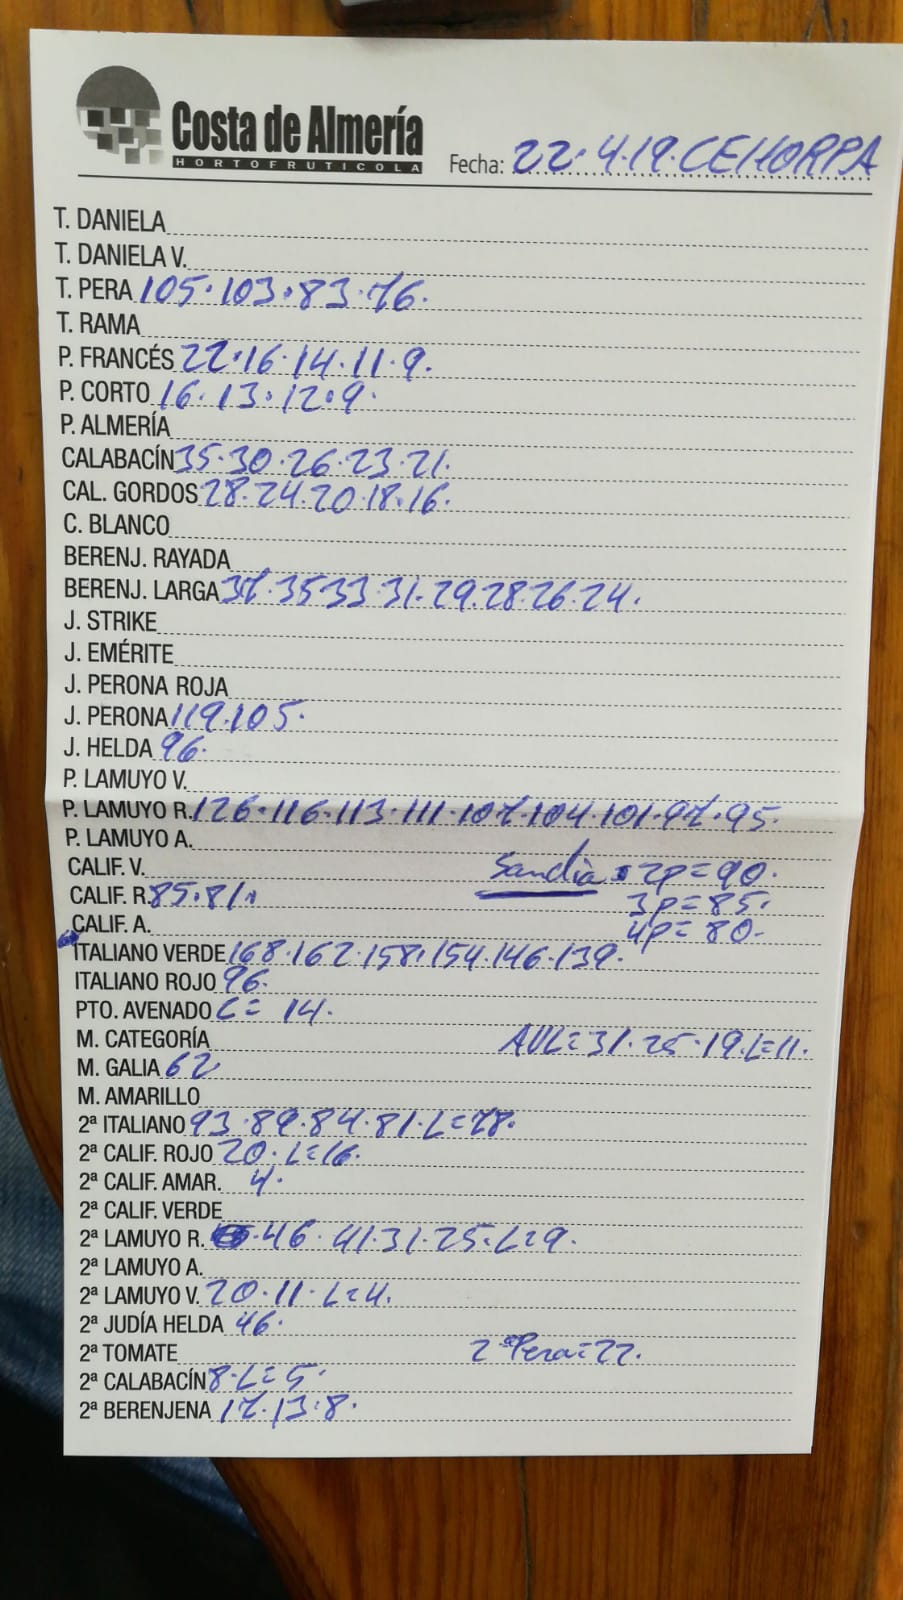 Costa de Almería
HORTOFRUTICOLA
Fecha: 22.4.19.CEHORPA
T. DANIELA
T. DANIELA V.
T. PERA 105.103.83.76.
T. RAMA
P. FRANCÉS 22.16.14.11.9.
P. CORTO 16.13.12.9.
P. ALMERÍA
CALABACÍN 35.30.26.23.21.
CAL. GORDOS 28.24.20.18.16.
C. BLANCO
BERENJ. RAYADA
BERENJ. LARGA 37.35 33.31.29.28.26.24.
J. STRIKE
J. EMÉRITE
J. PERONA ROJA
J. PERONA 119.105.
J. HELDA 96.
P. LAMUYO V.
P. LAMUYO R. 126.116.113.111.107.104.101.97.95.
P. LAMUYO A.
CALIF. V. Sandia 2p=90.
CALIF. R. 85.81. 3p=85.
CALIF. A. 4p=80.
ITALIANO VERDE 168.162.158.154.146.139.
ITALIANO ROJO 96.
PTO. AVENADO L= 14.
M. CATEGORÍA AVL=31.25.19.L=11.
M. GALIA 62
M. AMARILLO
2ª ITALIANO 93.89.84.81.L=78.
2ª CALIF. ROJO 20.L=16.
2ª CALIF. AMAR. 4.
2ª CALIF. VERDE
2ª LAMUYO R. .46.41.31.25.L=9.
2ª LAMUYO A.
2ª LAMUYO V. 20.11.L=4.
2ª JUDÍA HELDA 46.
2ª TOMATE 2ªPera=22.
2ª CALABACÍN 8.L=5.
2ª BERENJENA 17.13.8.